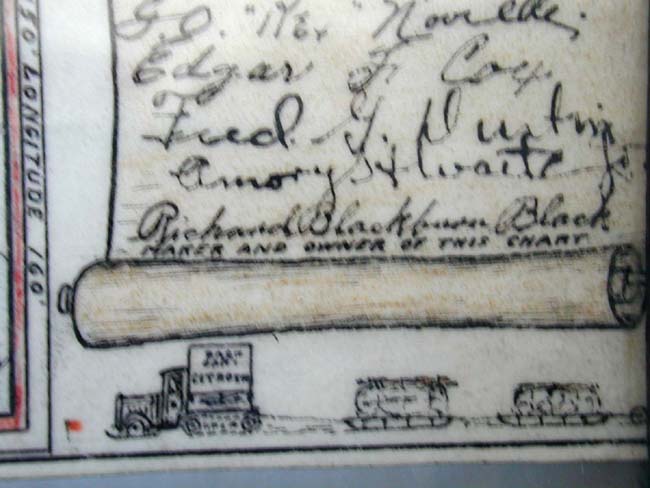 G.O. "Rex" Noville.
Edgar F. Cox
Fred G. Dustin
Amory H. Waite Jr.
Richard Blackburn Black
MAKER AND OWNER OF THIS CHART
150° LONGITUDE 160°
CITROEN